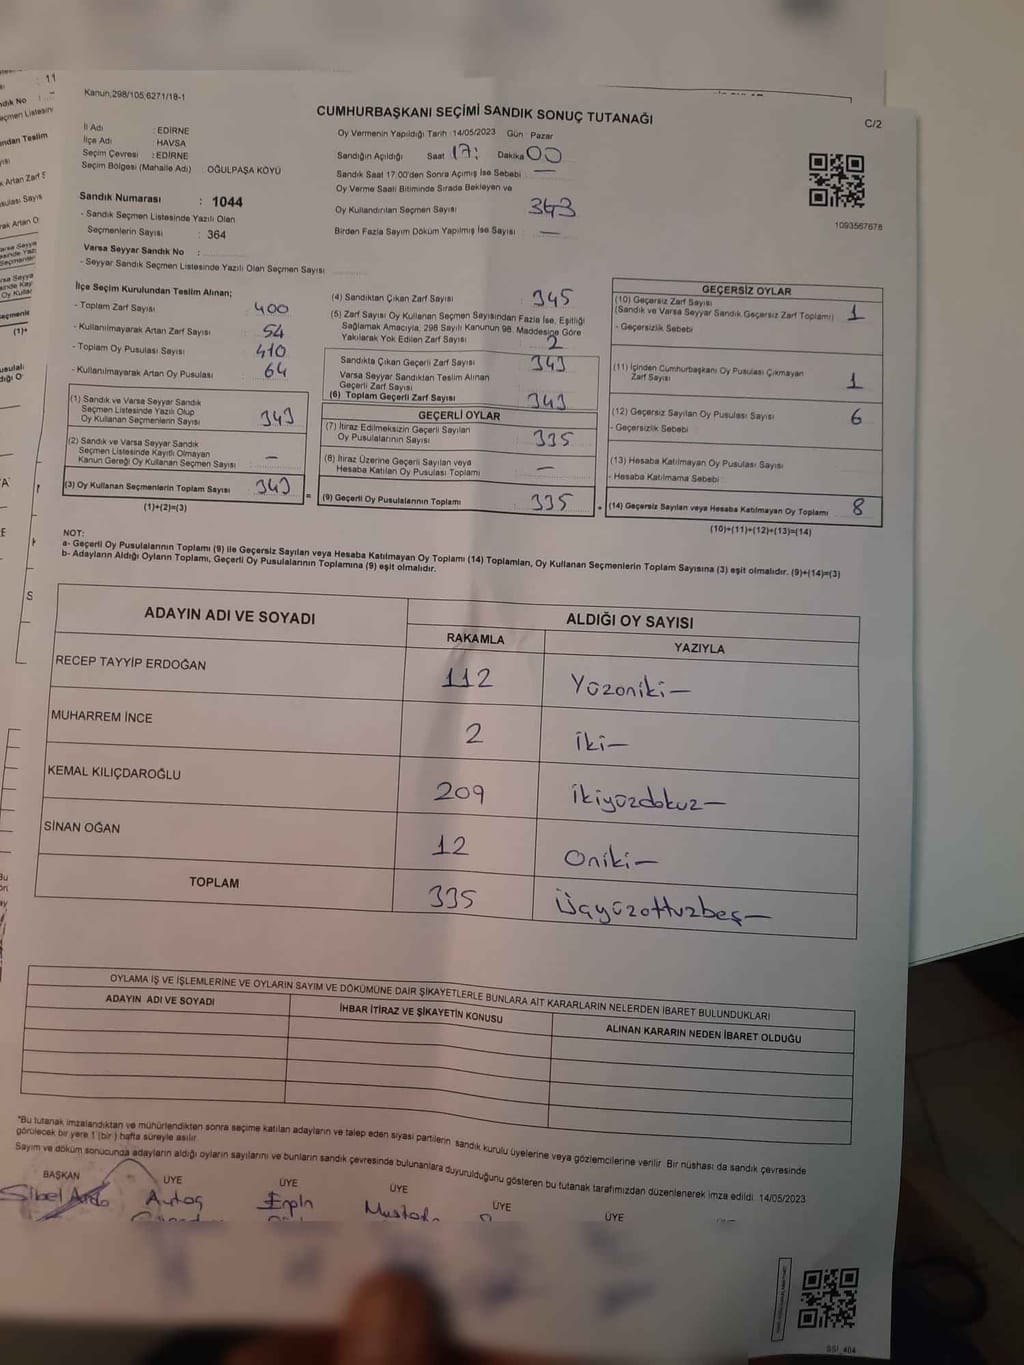 Kanun,298/105,6271/18-1
CUMHURBAŞKANI SEÇİMİ SANDIK SONUÇ TUTANAĞI
C/2
İl Adı : EDİRNE
İlçe Adı : HAVSA
Seçim Çevresi : EDİRNE
Seçim Bölgesi (Mahalle Adı) : OĞULPAŞA KÖYÜ
Sandık Numarası : 1044
- Sandık Seçmen Listesinde Yazılı Olan
Seçmenlerin Sayısı : 364
Varsa Seyyar Sandık No :
- Seyyar Sandık Seçmen Listesinde Yazılı Olan Seçmen Sayısı
Oy Vermenin Yapıldığı Tarih :14/05/2023 Gün : Pazar
Sandığın Açıldığı Saat 17: Dakika 00
Sandık Saat 17:00'den Sonra Açımış İse Sebebi : —
Oy Verme Saati Bitiminde Sırada Bekleyen ve
Oy Kullandırılan Seçmen Sayısı 343
Birden Fazla Sayım Döküm Yapılmış İse Sayısı : —
1093567678
İlçe Seçim Kurulundan Teslim Alınan;
- Toplam Zarf Sayısı : 400
- Kullanılmayarak Artan Zarf Sayısı : 54
- Toplam Oy Pusulası Sayısı : 410
- Kullanılmayarak Artan Oy Pusulası : 64
(1) Sandık ve Varsa Seyyar Sandık
Seçmen Listesinde Yazılı Olup
Oy Kullanan Seçmenlerin Sayısı : 343
(2) Sandık ve Varsa Seyyar Sandık
Seçmen Listesinde Kayıtlı Olmayan
Kanun Gereği Oy Kullanan Seçmen Sayısı : —
(3) Oy Kullanan Seçmenlerin Toplam Sayısı : 343
(1)+(2)=(3)
(4) Sandıktan Çıkan Zarf Sayısı : 345
(5) Zarf Sayısı Oy Kullanan Seçmen Sayısından Fazla İse, Eşitliği
Sağlamak Amacıyla, 298 Sayılı Kanunun 98. Maddesine Göre
Yakılarak Yok Edilen Zarf Sayısı : 2
Sandıkta Çıkan Geçerli Zarf Sayısı : 343
Varsa Seyyar Sandıktan Teslim Alınan
Geçerli Zarf Sayısı :
(6) Toplam Geçerli Zarf Sayısı : 343
GEÇERLİ OYLAR
(7) İtiraz Edilmeksizin Geçerli Sayılan
Oy Pusulalarının Sayısı : 335
(8) İtiraz Üzerine Geçerli Sayılan veya
Hesaba Katılan Oy Pusulası Toplamı : —
= (9) Geçerli Oy Pusulalarının Toplamı : 335
GEÇERSİZ OYLAR
(10) Geçersiz Zarf Sayısı
(Sandık ve Varsa Seyyar Sandık Geçersiz Zarf Toplamı) : 1
- Geçersizlik Sebebi :
(11) İçinden Cumhurbaşkanı Oy Pusulası Çıkmayan
Zarf Sayısı : 1
(12) Geçersiz Sayılan Oy Pusulası Sayısı : 6
- Geçersizlik Sebebi :
(13) Hesaba Katılmayan Oy Pusulası Sayısı :
- Hesaba Katılmama Sebebi :
+ (14) Geçersiz Sayılan veya Hesaba Katılmayan Oy Toplamı : 8
(10)+(11)+(12)+(13)=(14)
NOT:
a- Geçerli Oy Pusulalarının Toplamı (9) ile Geçersiz Sayılan veya Hesaba Katılmayan Oy Toplamı (14) Toplamları, Oy Kullanan Seçmenlerin Toplam Sayısına (3) eşit olmalıdır. (9)+(14)=(3)
b- Adayların Aldığı Oyların Toplamı, Geçerli Oy Pusulalarının Toplamına (9) eşit olmalıdır.
ADAYIN ADI VE SOYADI
ALDIĞI OY SAYISI
RAKAMLA YAZIYLA
RECEP TAYYİP ERDOĞAN 112 Yüzoniki—
MUHARREM İNCE 2 İki—
KEMAL KILIÇDAROĞLU 209 İkiyüzdokuz—
SİNAN OĞAN 12 Oniki—
TOPLAM 335 Üçyüzottuzbeş—
OYLAMA İŞ VE İŞLEMLERİNE VE OYLARIN SAYIM VE DÖKÜMÜNE DAİR ŞİKAYETLERLE BUNLARA AİT KARARLARIN NELERDEN İBARET BULUNDUKLARI
ADAYIN ADI VE SOYADI
İHBAR İTİRAZ VE ŞİKAYETİN KONUSU
ALINAN KARARIN NEDEN İBARET OLDUĞU
*Bu tutanak imzalandıktan ve mühürlendikten sonra seçime katılan adayların ve talep eden siyasi partilerin sandık kurulu üyelerine veya gözlemcilerine verilir. Bir nüshası da sandık çevresinde
görülecek bir yere 1 (bir ) hafta süreyle asılır.
Sayım ve döküm sonucunda adayların aldığı oyların sayılarını ve bunların sandık çevresinde bulunanlara duyurulduğunu gösteren bu tutanak tarafımızdan düzenlenerek imza edildi. 14/05/2023
BAŞKAN ÜYE ÜYE ÜYE ÜYE ÜYE
Sibel